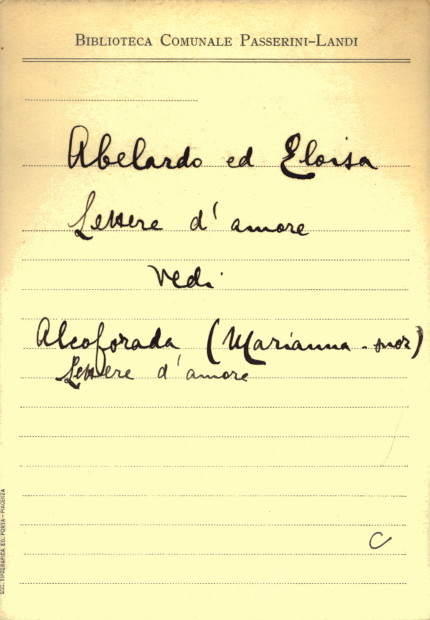 BIBLIOTECA COMUNALE PASSERINI-LANDI
Abelardo ed Eloisa
Lettere d'amore
Vedi
Alcoforada (Marianna - suor)
Lettere d'amore
C
SOC. TIPOGRAFICA ED. PORTA - PIACENZA